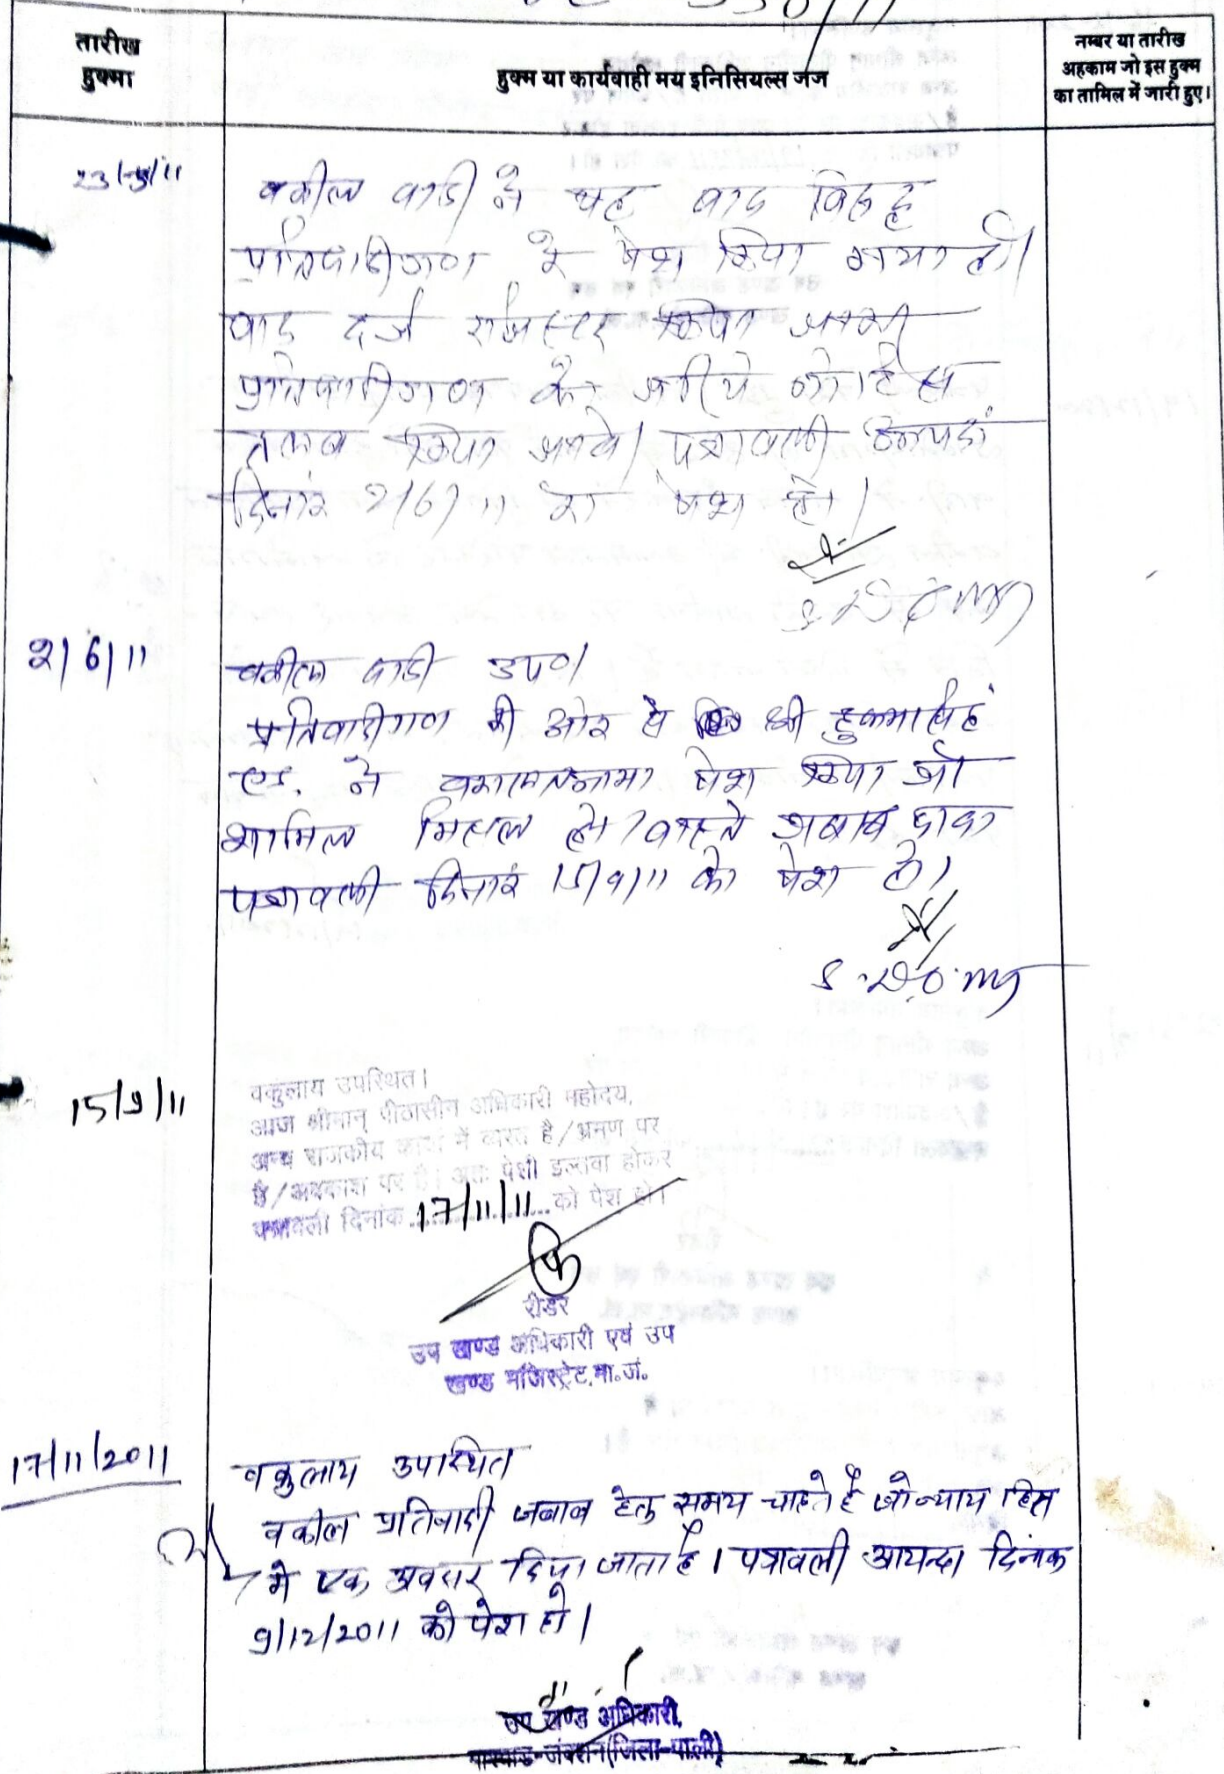 तारीख
हुक्मा
हुक्म या कार्यवाही मय इनिसियल्स जज
नम्बर या तारीख
अहकाम जो इस हुक्म
का तामिल में जारी हुए।
वकील वादी ने यह वाद विरुद्ध
प्रतिवादीगण के पेश किया गया है।
वाद दर्ज रजिस्टर किया जावे
प्रतिवादीगण को जरीये नोटिस
तलब किया जावे। पत्रावली आयन्दा
दिनांक 2/6/11 को पेश हो।
2/6/11
वकील वादी उप०।
प्रतिवादीगण की ओर से श्री हुकमसिंह
एड. ने वकालतनामा पेश किया जो
शामिल मिसल हो। वास्ते जवाब दावा
पत्रावली दिनांक 15/9/11 को पेश हो।
S.D.O. MJ
15/9/11
वकुलाय उपस्थित।
आज श्रीमान् पीठासीन अधिकारी महोदय,
अन्य राजकीय कार्य में व्यस्त है/भ्रमण पर
है/अवकाश पर है। अतः पेशी इल्तवा होकर
पत्रावली दिनांक 17/11/11 को पेश हो।
रीडर
उप खण्ड अधिकारी एवं उप
खण्ड मजिस्ट्रेट, मा.जं.
17/11/2011
वकुलाय उपस्थित
वकील प्रतिवादी जवाब हेतु समय चाहते है जो न्याय हित
मे एक अवसर दिया जाता है। पत्रावली आयन्दा दिनांक
9/12/2011 को पेश हो।
उप खण्ड अधिकारी,
मारवाड़-जंक्शन (जिला-पाली)